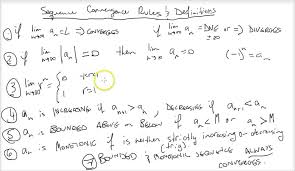 Sequence Convergence Rules & Definitions
① if lim n→∞ aₙ = L ⇒ CONVERGES if lim n→∞ = DNE or ∞ ⇒ DIVERGES
② if lim n→∞ |aₙ| = 0 then lim n→∞ aₙ = 0 (-1)ⁿ aₙ
③ lim n→∞ rⁿ = { 0
1 r=1
④ aₙ is INCREASING if aₙ₊₁ > aₙ, DECREASING if aₙ₊₁ < aₙ
⑤ aₙ is BOUNDED ABOVE or BELOW if aₙ < M or aₙ > M
⑥ aₙ is MONOTONIC if is neither strictly increasing or decreasing
(trig)
⑦ BOUNDED & MONOTONIC SEQUENCE ALWAYS
CONVERGES.